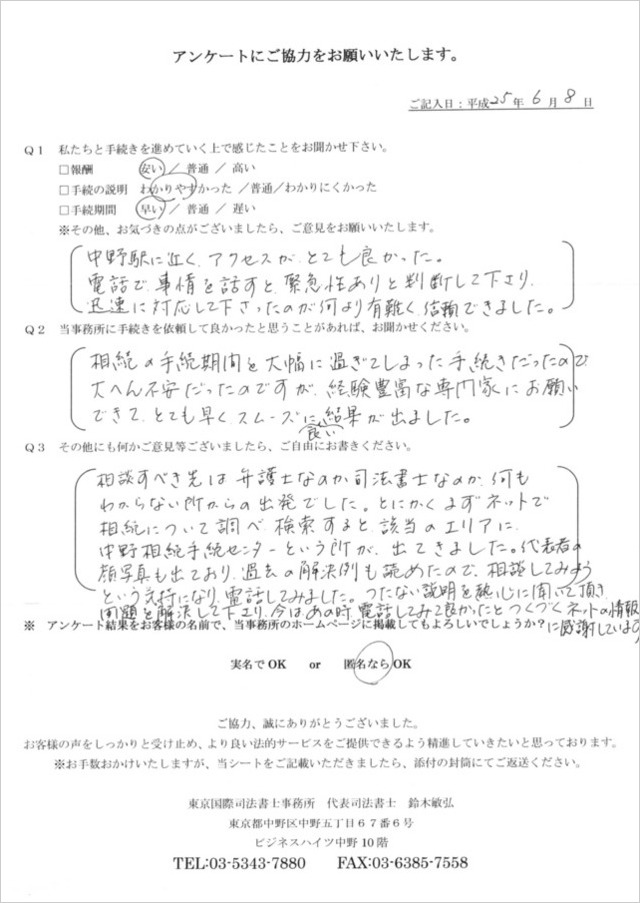 アンケートにご協力をお願いいたします。
ご記入日：平成25年6月8日
Q1 私たちと手続きを進めていく上で感じたことをお聞かせ下さい。
□報酬 安い ／ 普通 ／ 高い
□手続の説明 わかりやすかった ／普通／わかりにくかった
□手続期間 早い ／ 普通 ／ 遅い
※その他、お気づきの点がございましたら、ご意見をお願いいたします。
中野駅に近く、アクセスが、とても良かった。
電話で、事情を話すと、緊急性ありと判断して下さり、
迅速に対応して下さったのが何より有難く、信頼できました。
Q2 当事務所に手続きを依頼して良かったと思うことがあれば、お聞かせください。
相続の手続期間を大幅に過ぎてしまった手続きだったので、
大へん不安だったのですが、経験豊富な専門家にお願い
できて、とても早く、スムーズに良い結果が出ました。
Q3 その他にも何かご意見等ございましたら、ご自由にお書きください。
相談すべき先は弁護士なのか、司法書士なのか、何も
わからない所からの出発でした。とにかくまずネットで
相続について調べ、検索すると、該当のエリアに、
中野相続手続センターという所が、出てきました。代表者の
顔写真も出ており、過去の解決例も読めたので、相談してみよう
という気持になり、電話してみました。つたない説明を熱心に聞いて頂き、
問題を解決して下さり、今はあの時、電話してみて良かったとつくづくネットの情報
に感謝しています。
※ アンケート結果をお客様の名前で、当事務所のホームページに掲載してもよろしいでしょうか？
実名でOK or 匿名ならOK
ご協力、誠にありがとうございました。
お客様の声をしっかりと受け止め、より良い法的サービスをご提供できるよう精進していきたいと思っております。
※お手数おかけいたしますが、当シートをご記載いただきましたら、添付の封筒にてご返送ください。
東京国際司法書士事務所 代表司法書士 鈴木敏弘
東京都中野区中野五丁目６７番６号
ビジネスハイツ中野10階
TEL:03-5343-7880 FAX:03-6385-7558